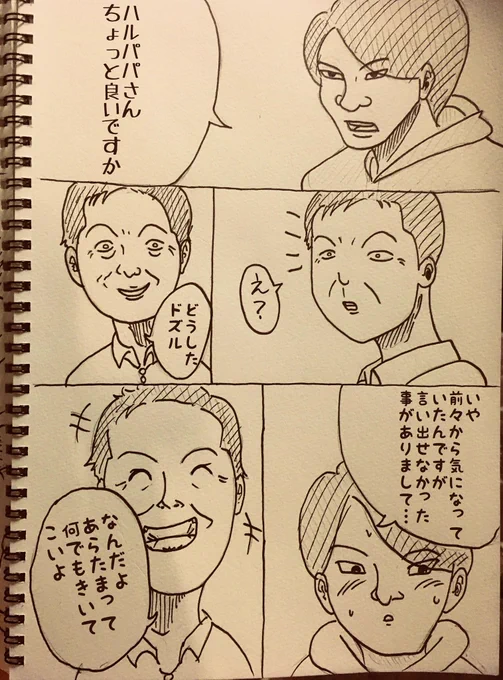 ハルパパさん
ちょっと良いですか
え？
どうした
ドズル
いや
前々から気になって
いたんですが
言い出せなかった
事がありまして…
なんだよ
あらたまって
何でもきいて
こいよ